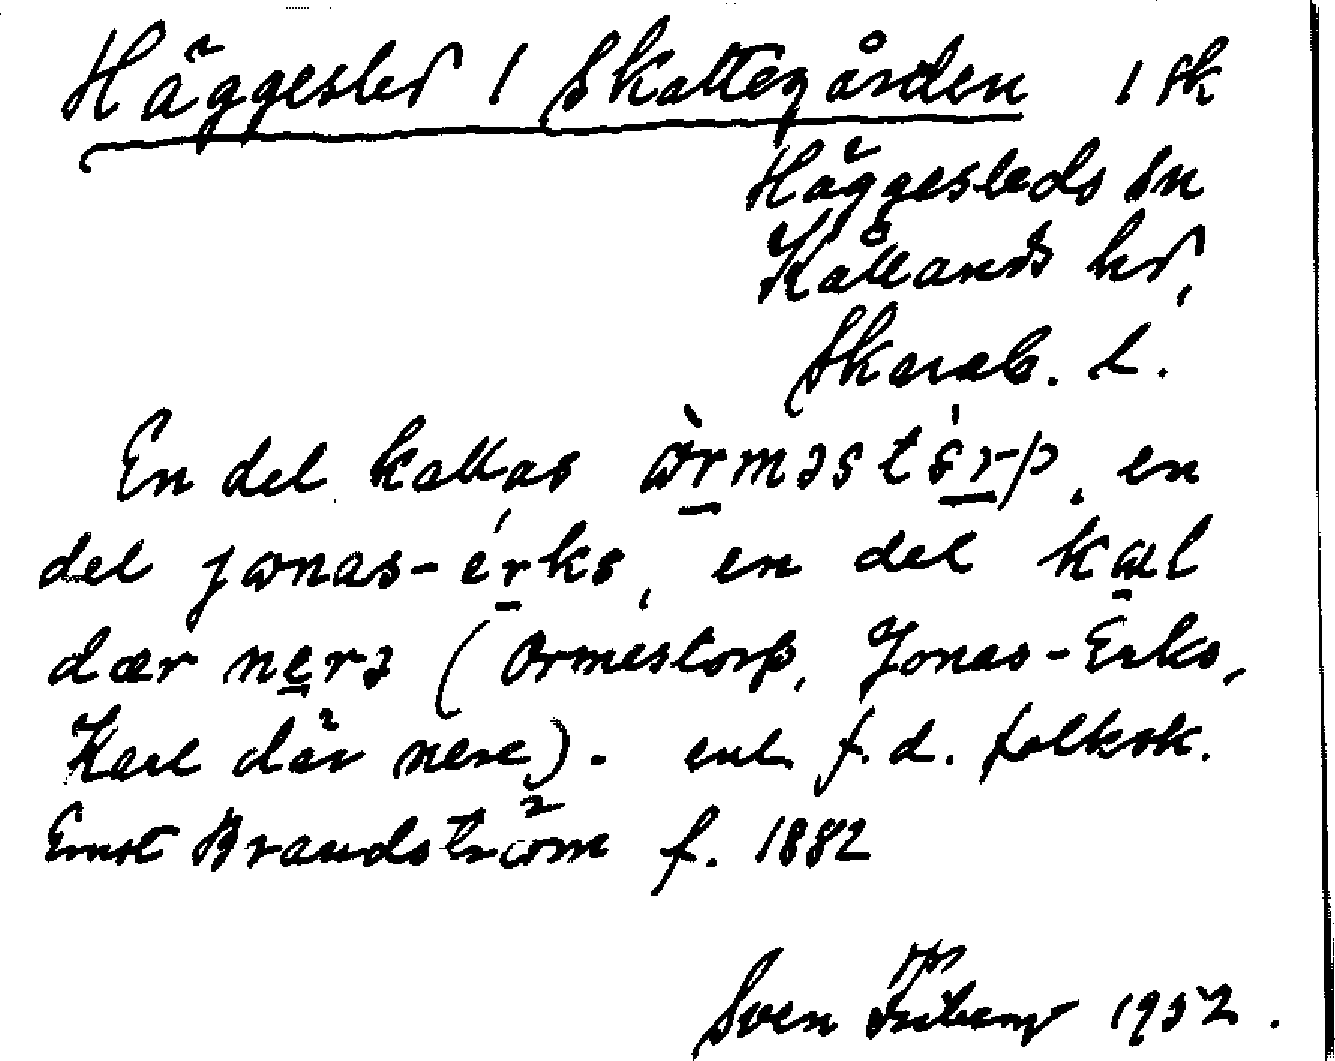 Häggesled 1 Skattegården 1 sk
Häggesleds sn
Kållands hd,
Skarab. l.
En del kallas òrməstórp, en
del jonas-érks, en del kal
dær nerə (Ormestorp, Jonas-Erks,
Karl där nere). enl. f.d. folksk.
Ernst Brandström f. 1882
Sven 1952.